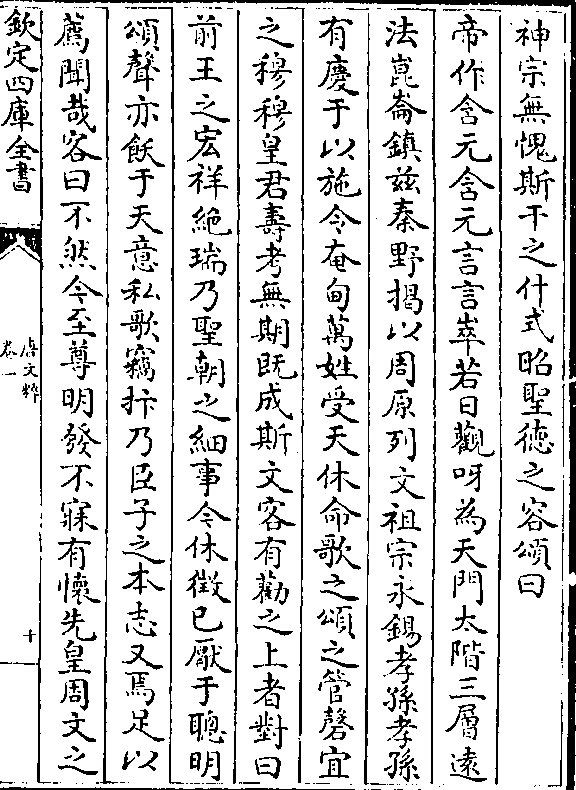 神宗無愧斯干之什式昭聖德之容頌曰
帝作含元含元言言崒若日觀呀為天門太階三層遠
法崑崙鎮兹秦野揭以周原列文祖宗永錫孝孫孝孫
有慶于以施令奄甸萬姓受天休命歌之頌之管磬宜
之穆穆皇君壽考無期既成斯文客有勸之上者對曰
前王之宏祥絶瑞乃聖朝之細事今休徵已厭于聰明
頌聲亦飫于天意私歌竊抃乃臣子之本志又焉足以
薦聞哉客曰不然今至尊明發不寐有懷先皇周文之
欽定四庫全書
唐文粹
卷一
十